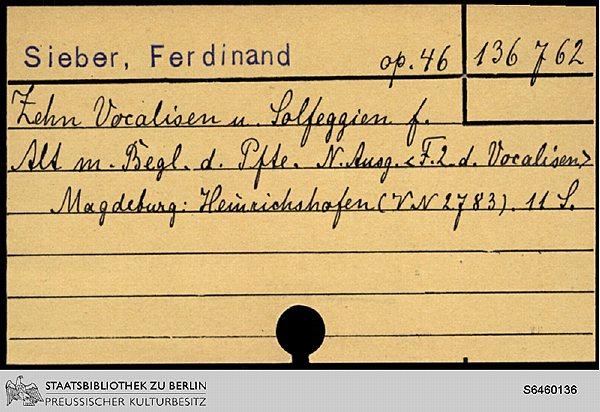 Sieber, Ferdinand op. 46 136 762
Zehn Vocalisen u. Solfeggien f.
Alt m. Begl. d. Pfte. N. Ausg. <F. 2. d. Vocalisen>
Magdeburg: Heinrichshofen (VN 2783). 11 S.
STAATSBIBLIOTHEK ZU BERLIN
PREUSSISCHER KULTURBESITZ
S6460136